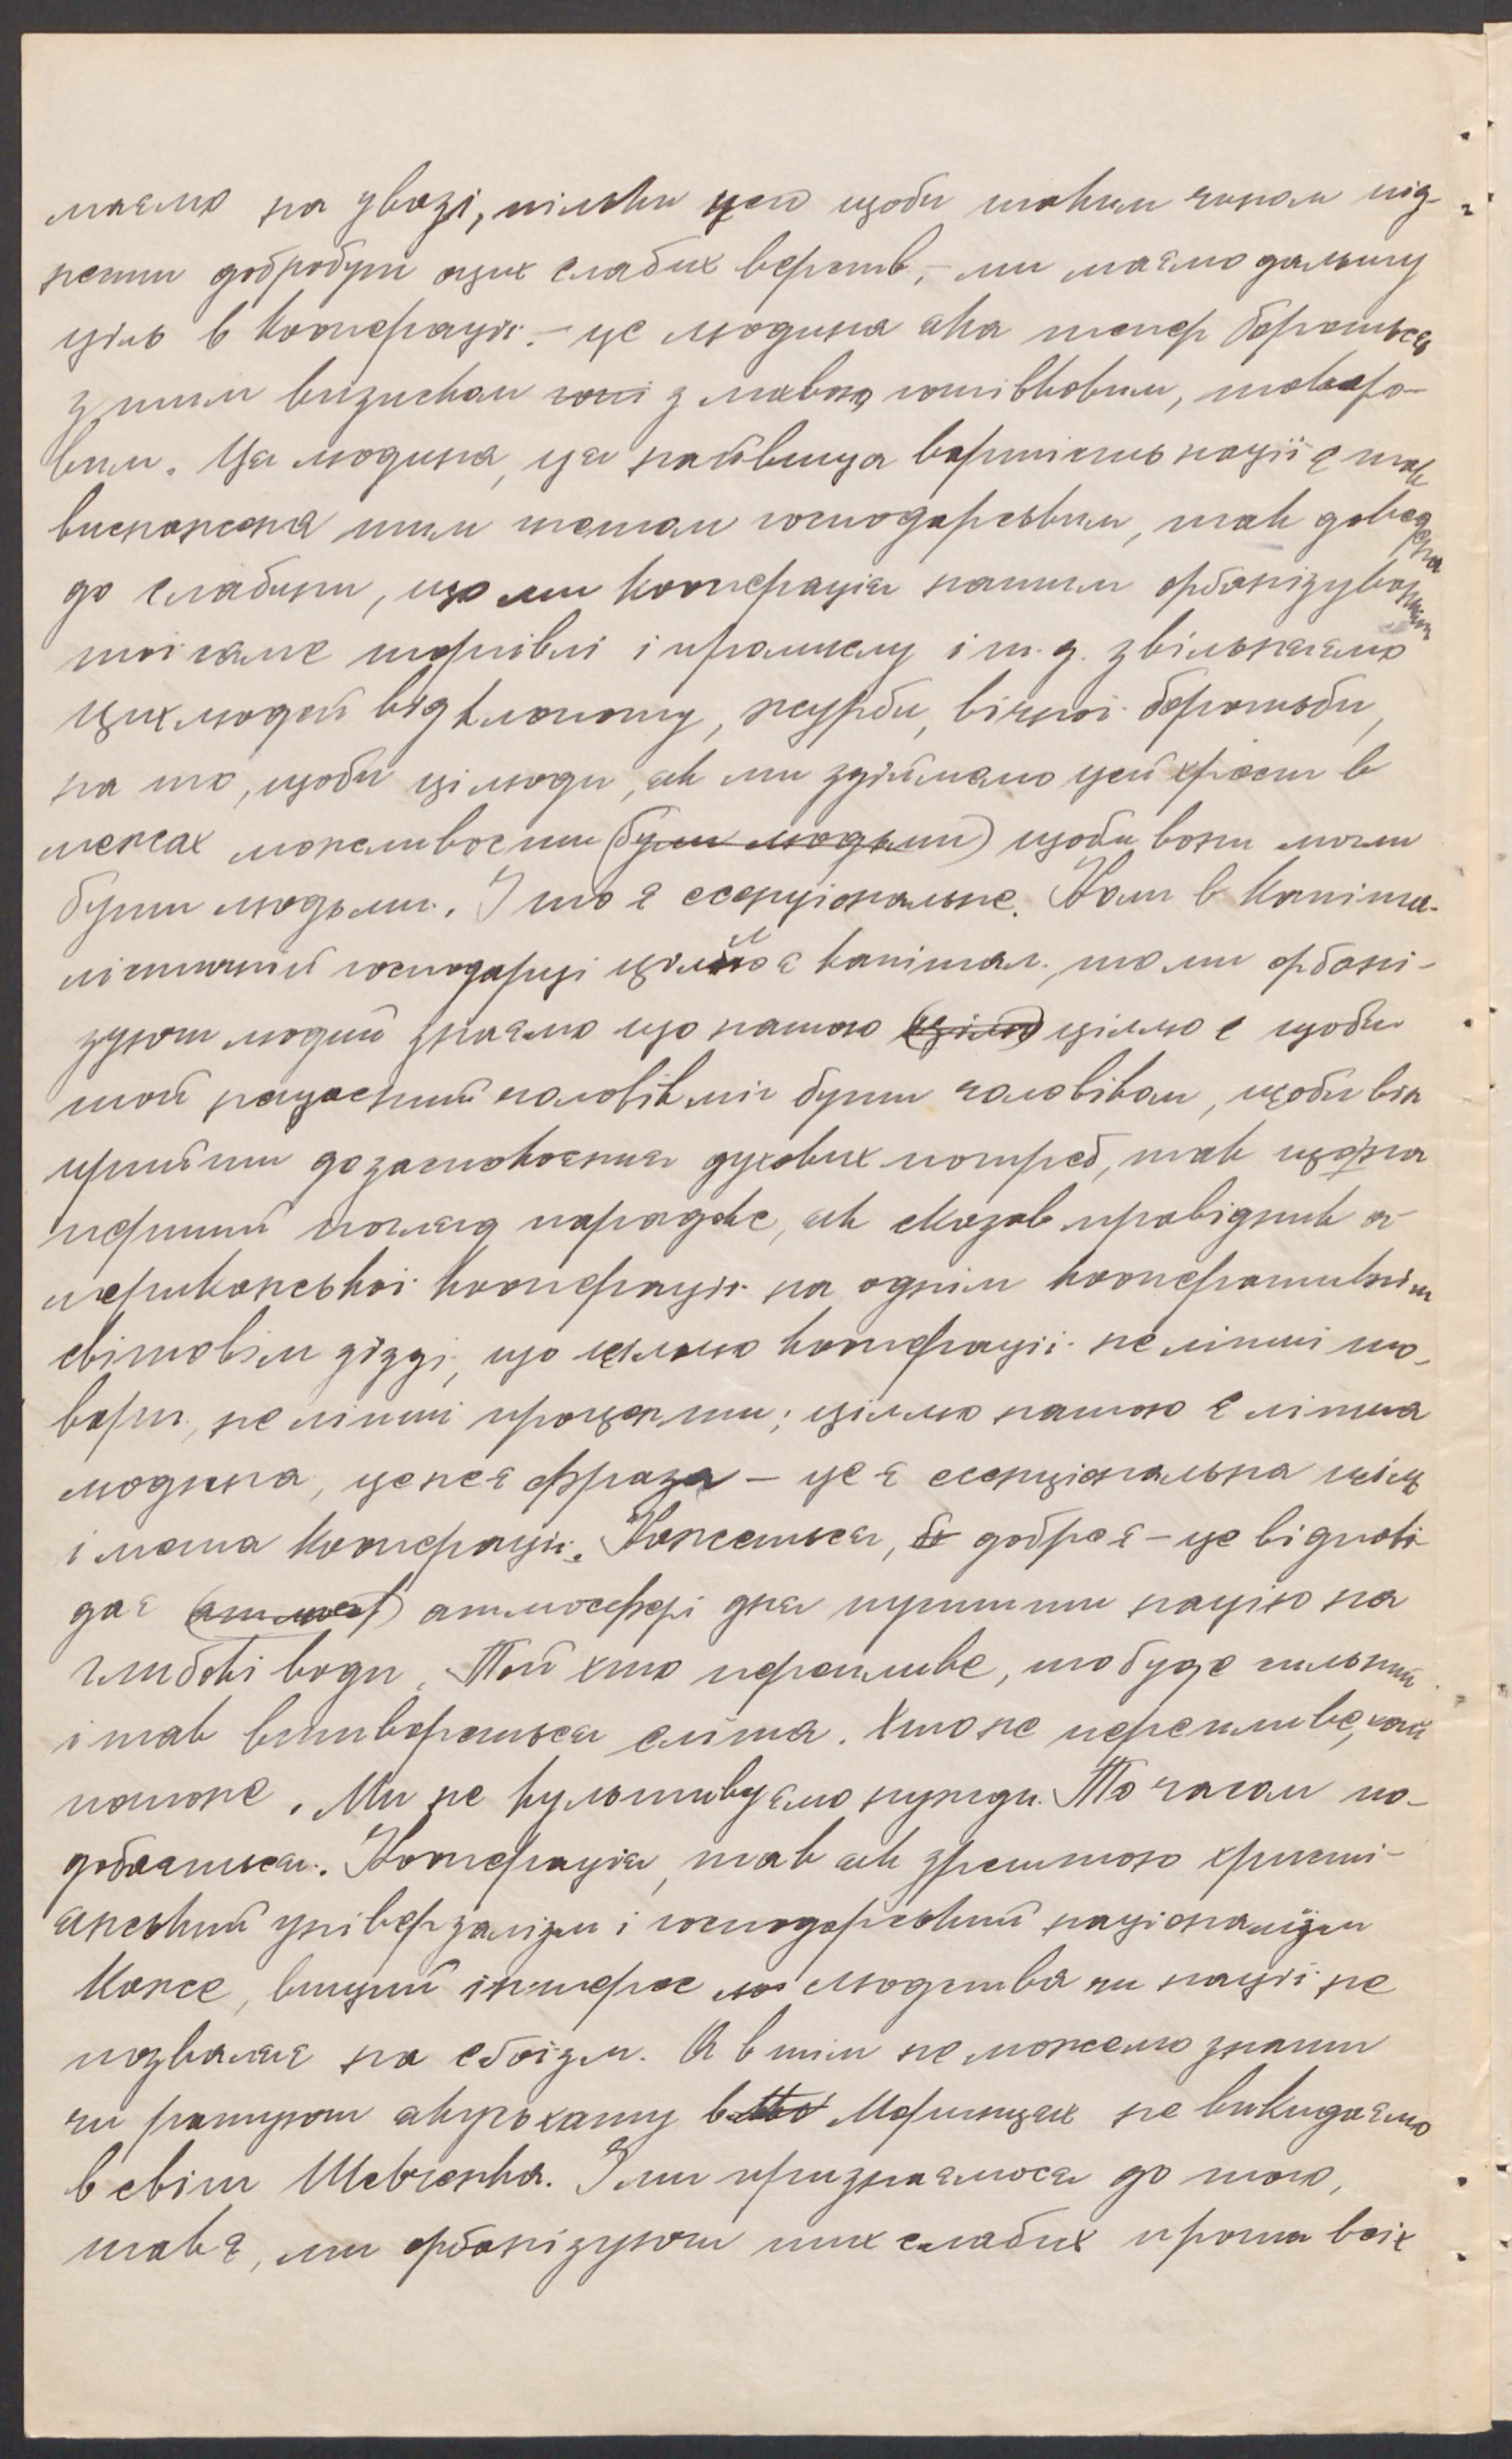 маємо на увазі, тільки щоби таким чином під-
нести добробут оцих слабих верств, – ми маємо дальшу
ціль в кооперації. – це людина яка тепер бореться
з тим визиском з лихвою готівковим, товаро-
вим. Ця людина, ця найвища вартість нації є так
виснажена тим цілим господарсьвим, так доведена
до слабини, що ми кооперація нашим орґанізуванням
тої самої торгівлі і промислу і т. д. звільнаємо
цих людей від клопоту, журби, вічної боротьби,
на то, щоби ці люди, як ми здіймаємо цей хрест в
межах можливости (були людьми) щоби вони могли
бути людьми. І то є есенціональне. Коли в капіта-
лістичній господарці цілею є капітал, то ми орґані-
зуючи людий знаємо що нашою (цілю) ціллю є щоби
той нещасний чоловік міг бути чоловіком, щоби він
прийти до заспокоєння духових потреб, так що на
перший погляд парадокс, як сказав провідник а-
мериканської кооперації на однім кооперативнім
світовім зїзді, що цілею кооперації не ліпші то-
вари, не ліпші проценти; цілею нашою є ліпша
людина, це не є фраза – це є есенціональна ціль
і мета кооперації. Кажеться, добре є – це відпові-
дає (атмосф) атмосфері дня пустити націю на
глибокі води. Той хто перепливе, то буде сильний
і так витвориться еліта. Хто не перепливе, хай
потоне. Ми не культивуємо нужди. То часом по-
добається. Кооперація, так як зрештою христи-
янський універзалізм і господарський націоналізм
каже, вищий інтерес людства чи нації не
позваляє на еґоїзм. А втім не можемо знати
чи ратуючи якусь хату в Моринцях не викидаємо
в світ Шевченка. І ми признаємося до того,
так є, ми орґанізуючи тих слабих проти всіх